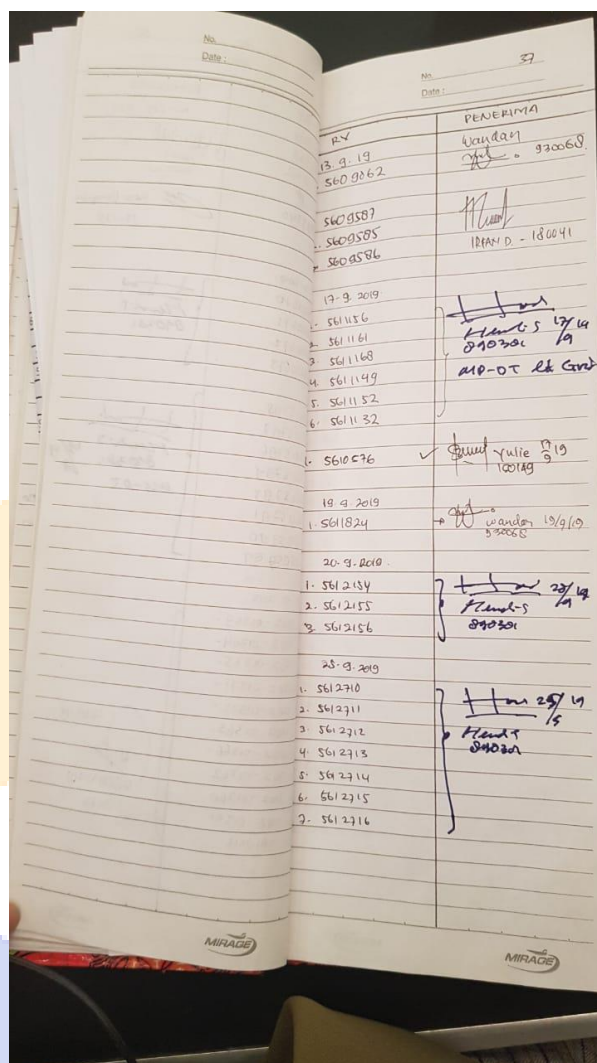 No.
Date :
No. 37
Date :
RV PENERIMA
13. 9. 19 Wandan
5609062 930068.
5609587
5609585 IRFAN D. - 180041
5609586
17-9. 2019
1. 5611156 Hendi-S 17/19
2. 5611161 890301 /9
3. 5611168
4. 5611149
5. 5611152
6. 5611132
1. 5610576 ✓ Yulie 17/9 19
19. 9. 2019
1. 5611824 wandan 19/9/19
930068
20-9-2019.
1. 5612154
2. 5612155 Hendi-S
3. 5612156 890301
25-9-2019
1. 5612710
2. 5612711
3. 5612712
4. 5612713
5. 5612714
6. 5612715
7. 5612716
MIRAGE
MIRAGE